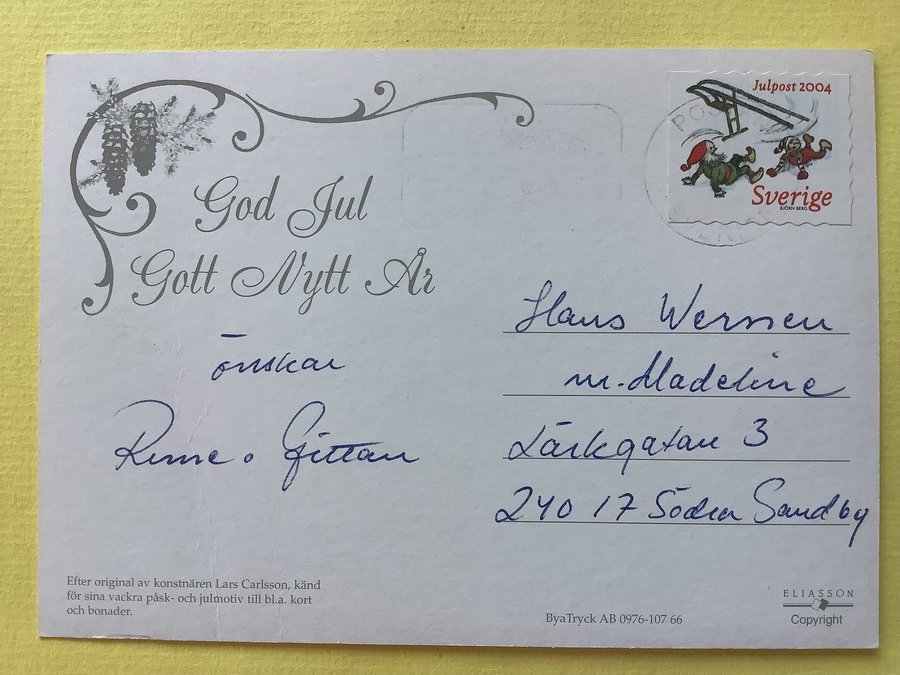 God Jul
Gott Nytt År
önskar
Rune o Gittan
Julpost 2004
Sverige
BJÖRN BERG
POS
Hans Wernen
m. Madeleine
Lärkgatan 3
240 17 Södra Sandby
Efter original av konstnären Lars Carlsson, känd
för sina vackra påsk- och julmotiv till bl.a. kort
och bonader.
ByaTryck AB 0976-107 66
ELIASSON
Copyright